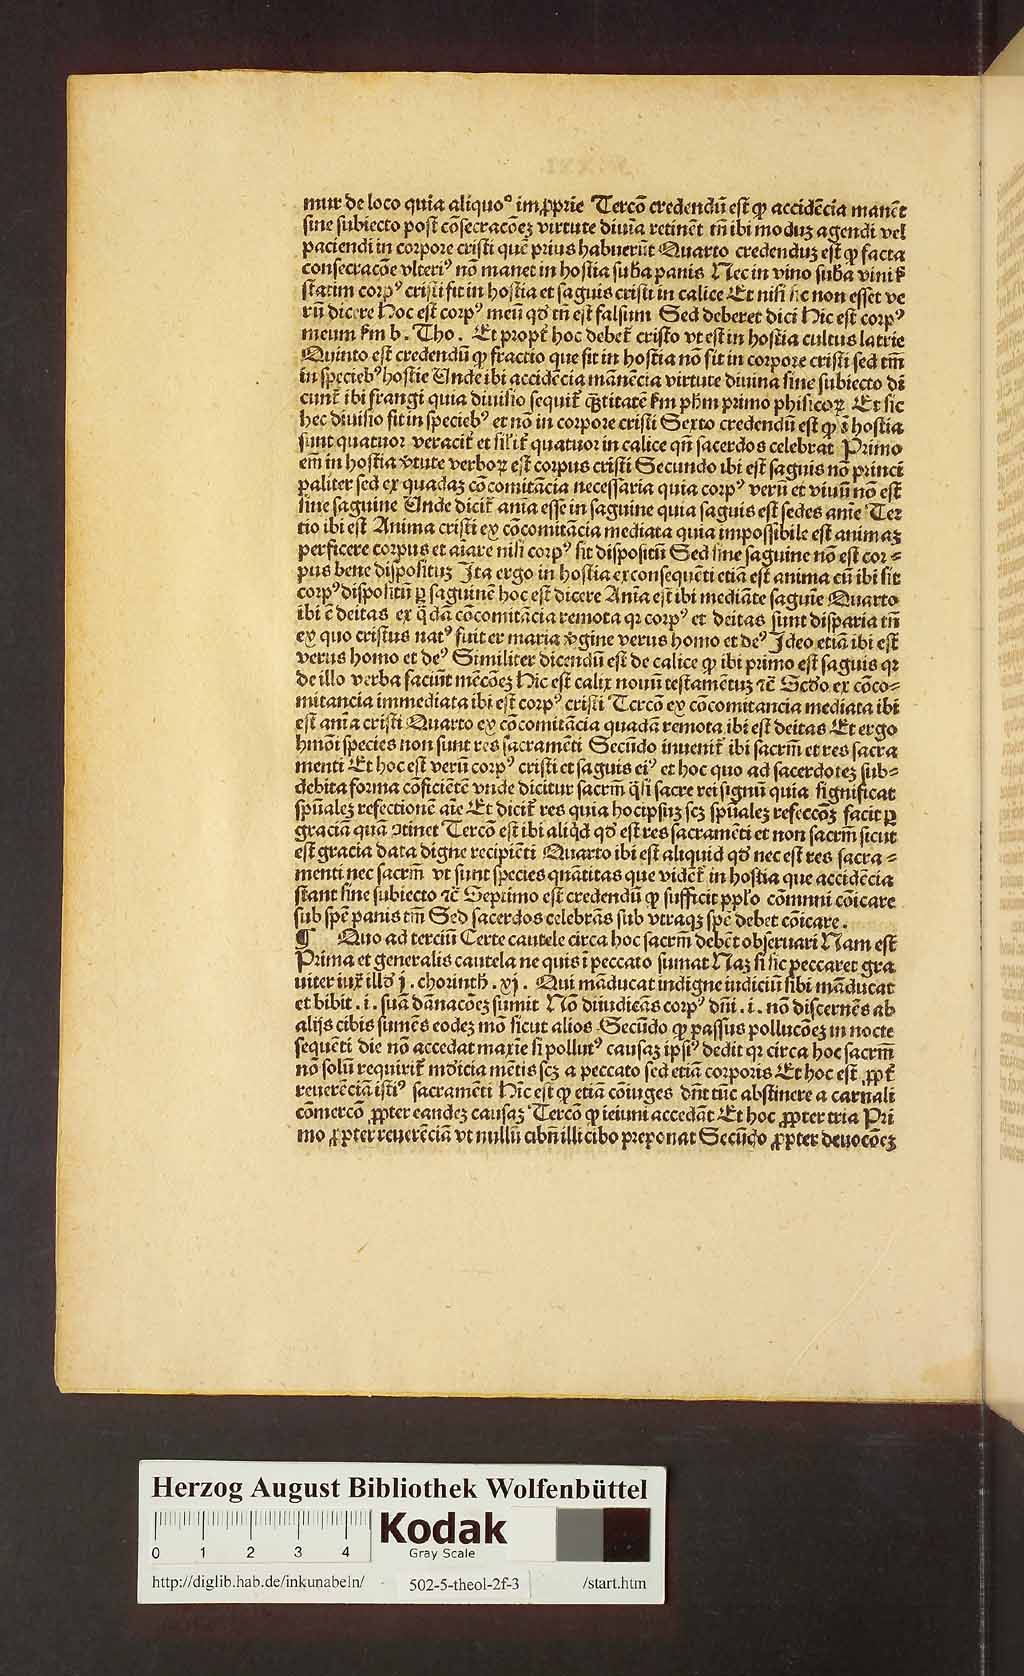 mur de loco quia aliquoꝰ imꝓprie Tercō credendū est ꝙ accidēcia manēt
sine subiecto post cōsecracōeꝫ virtute diuīa retinēt tñ ibi moduꝫ agendi vel
paciendi in corpore cristi quē prius habuerūt Quarto credenduꝫ est ꝙ facta
consecracōe vlteriꝰ nō manet in hostia suba panis Nec in vino suba vini sꝫ
statim corpꝰ cristi fit in hostia et saguis cristi in calice Et nisi sic non esset ve
rū dicere Hoc est corpꝰ meū qď tñ est falsum Sed deberet dici Hic est corpꝰ
meum ẜm b. Tho. Et propt̄ hoc debet̄ cristo vt est in hostia cultus latrie
Quinto est credendū ꝙ fractio que fit in hostia nō fit in corpore cristi sed tm̄
in speciebꝰ hostie Unde ibi accidēcia manēncia virtute diuina sine subiecto di
cunt̄ ibi frangi quia diuisio sequit̄ q̄ꝫtitatē ẜm ph̄m primo phisicoꝝ Et sic
hec diuisio fit in speciebꝰ et nō in corpore cristi Sexto credendū est ꝙ ī hostia
sunt quatuor veracit̄ et sil'it̄ quatuor in calice qn̄ sacerdos celebrat Primo
em̄ in hostia v̓tute verboꝝ est corpus cristi Secundo ibi est saguis nō princi
paliter sed ex quadaꝫ cōcomitācia necessaria quia corpꝰ verū et viuū nō est
sine saguine Unde dicit̄ anīa esse in saguine quia saguis est sedes anie Ter
tio ibi est Anima cristi ex cōcomitācia mediata quia impossibile est animaꝫ
perficere corpus et aīare nisi corpꝰ sit dispositū Sed sine saguine nō est cor-
pus bene dispositꝫ Ita ergo in hostia exconsequēti etiā est anima cū ibi sit
corpꝰ dispositū ꝑ saguinē hoc est dicere Anīa est ibi mediāte saguīe Quarto
ibi ē deitas ex q̄dā cōcomitācia remota qꝛ corpꝰ et deitas sunt disparia tñ
ex quo cristus natꝰ fuit er maria v̓gine verus homo et deꝰ Ideo etiā ibi est
verus homo et deꝰ Similiter dicendū est de calice ꝙ ibi primo est saguis qꝛ
de illo verba faciūt mēcōeꝫ Hic est calix nouū testamentuꝫ ⁊c̄ Scďo ex cōco-
mitancia immediata ibi est corpꝰ cristi Tercō ex cōcomitancia mediata ibi
est anīa cristi Quarto ex cōcomitācia quadā remota ibi est deitas Et ergo
hmōi species non sunt res sacramēti Secūdo inuenit̄ ibi sacrm̄ et res sacra
menti Et hoc est verū corpꝰ cristi et saguis eiꝰ et hoc quo ad sacerdoteꝫ sub-
debita forma cōficiētē vnde dicitur sacrm̄ q̄si sacre rei signū quia significat
spūaleꝫ refectionē aīe Et dicit̄ res quia hocipsuꝫ scꝫ spūaleꝫ refeccōꝫ facit ꝑ
graciā quā ↄtinet Tercō est ibi aliqď qď est res sacramēti et non sacrm̄ sicut
est gracia data digne recipiēti Quarto ibi est aliquid qď nec est res sacra-
menti nec sacrm̄ vt sunt species quātitas que vident̄ in hostia que accidēcia
stant sine subiecto ⁊c̄ Septimo est credendū ꝙ sufficit pplo cōmuni cōicare
sub spē panis tm̄ Sed sacerdos celebrās sub vtraqꝫ spē debet cōicare.
¶ Quo ad terciū Certe cautele circa hoc sacrm̄ debēt obseruari Nam est
Prima et generalis cautela ne quis ī peccato sumat Naꝫ si sic peccaret gra
uiter iux̄ illď j. chorinth. xj. Qui māducat indigne iudiciū sibi māducat
et bibit .i. suā dānacōeꝫ sumit Nō diiudicās corpꝰ dn̄i .i. nō discernēs ab
alijs cibis sumēs eodeꝫ mō sicut alios Secūdo ꝙ passus pollucōeꝫ in nocte
sequēti die nō accedat maxīe si pollutꝰ causaꝫ ipsiꝰ dedit qꝛ circa hoc sacrm̄
nō solū requirit̄ mūdicia mētis scꝫ a peccato sed etiā corporis Et hoc est ꝓpt̄
reuerēciā istiꝰ sacramēti Hīc est ꝙ etiā cōiuges dn̄t tūc abstinere a carnali
cōmercō ꝓpter eandeꝫ causaꝫ Tercō ꝙ ieiuni accedāt Et hoc ꝓpter tria Pri
mo ꝓpter reuerēciā vt nullū cibū illi cibo preponat Secūdo ꝓpter deuocōeꝫ
Herzog August Bibliothek Wolfenbüttel
0 1 2 3 4
Kodak
Gray Scale
http://diglib.hab.de/inkunabeln/ 502-5-theol-2f-3 /start.htm